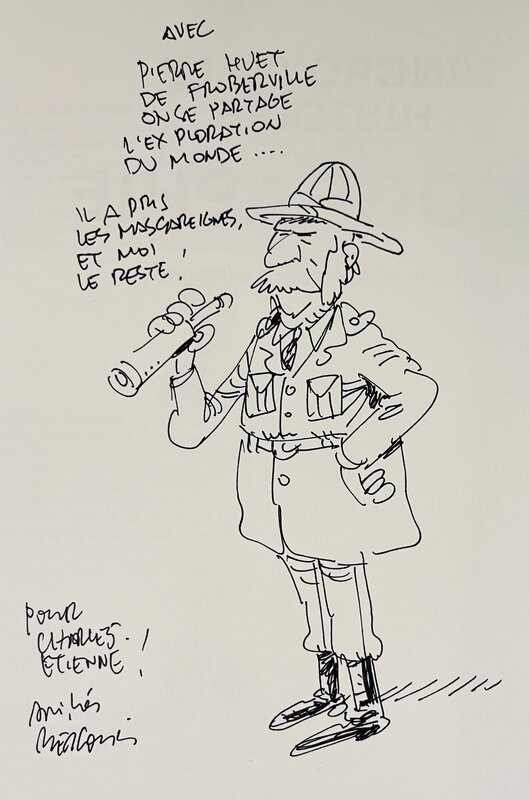 AVEC
PIERRE HUET
DE FROBERVILLE
ON SE PARTAGE
L'EXPLORATION
DU MONDE....
IL A PRIS
LES MASCAREIGNES,
ET MOI
LE RESTE!
POUR
CHARLES-
ETIENNE!
Amitiés